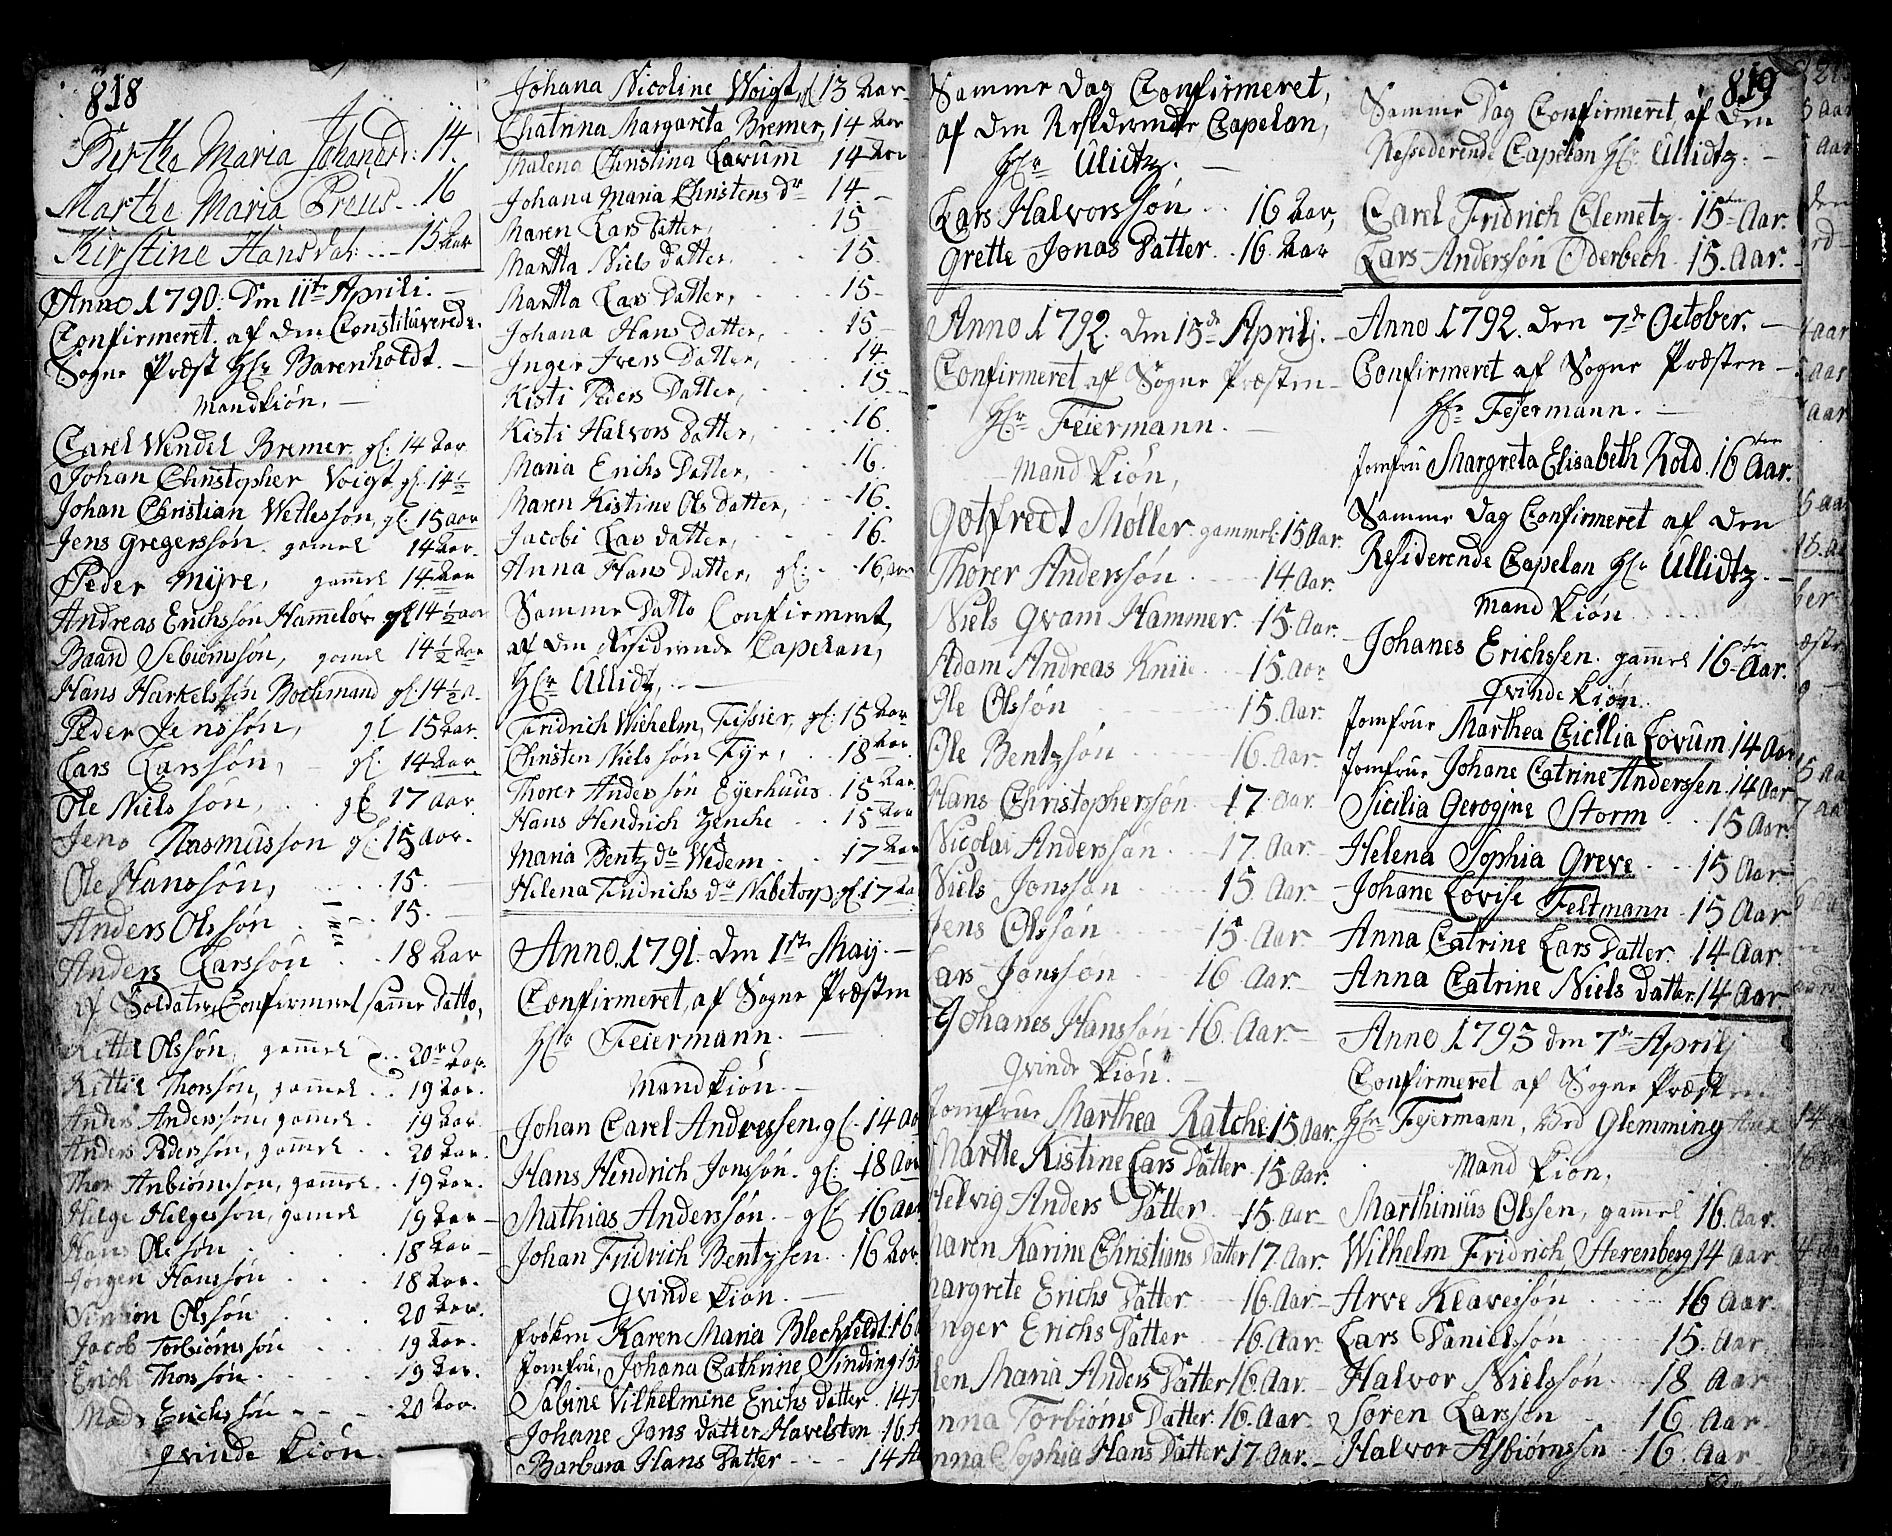 818
Berthe Maria Johansd: 14.
Marthe Maria Preus.. 16
Kirstine Hansdat: ... 15 Aar
Anno 1790. Den 11te Aprili. —
Confirmeret af den Constituerede
Sogne Præst Hr Barenholdt. —
Mandkiøn. —
Carel Wendel Bremer gl: 14 Aar
Johan Christopher Voigt gl: 14½
Johan Christian Wetlessøn, gl: 15 Aar
Jens Gregerssøn. gamel 14 Aar.
Peder Mijre, gammel 14 Aar
Andreas Erichssøn Hammelov gl 14½ aar
Baard Sebiørnssøn, gamel 14½ Aar
Hans Harkelssøn Bochmand gl: 14½ A.
Peder Jenssøn, gl 15 Aar.
Lars Larssøn, – gl: 14 Aar
Ole Nielssøn, . . gl 17 Aar
Jens Rasmussøn gl: 15 Aar.
Ole Hanssøn, .... 15. —
Anders Olssøn . . . 15. —
Anders Larssøn . . 18 Aar
af Soldater Confirmeret samme Datto,
Kittil Olssøn, gammel .. 20 Aar.
Kittil Thorssøn, gammel .. 19 Aar.
Anders Anderssøn, gammel . 19 Aar.
Anders Pederssøn, gammel .. 20 Aar.
Thor Anbiørnssøn, gammel. . 19 Aar.
Helge Helgessøn, gamel 19 Aar –
Hans Olssøn . . . . 18 Aar –
Jørgen Hanssøn . . . 18 Aar.
Simion Olssøn . . . 20 Aar.
Jacob Torbiørnssøn . . . 19 Aar.
Erich Thorssøn . . . . 19 Aar.
Mads Erichssøn – – – 20 Aar.
Qvinde Kiøn.
Johana Nicoline Voigt, gl 13 Aar.
Chatrina Margareta Bremer, 14 Aar
Malena Christina Lavum 14 Aar
Johana Maria Christens dr 14 –
Maren Lars Datter, . . . 15
Martha Niels Datter. . . 15.
Martha Lars Datter, . . . 15 –
Johana Hans Datter, . . . 15 –
Inger Ivers Datter, . . . 14.
Kisti Peders Datter, . . . 15 –
Kisti Halvors Datter, . . . 16.
Maria Erichs Datter, . . . 16.
Maren Kistine Ols Datter, . . 16.
Jacobi Lars Datter, . . . 16.
Anna Hans Datter, gl: . . 16 Aar
Samme Datto Confirmeret,
af den Residerende Capelan,
Hr Ullidtz. —
Fridrich Wilhelm, Fissier, gl: 15 Aar
Christen Nielssøn Fyr, . . 18 Aar
Thorer Anderssøn Eyerhuus. 15 Aar
Hans Hendrich Zenche . . 15 Aar
Maria Bentz dr Wedem . . 17 Aar
Helena Fridrichs dr Nabetorp, gl 17 Aa
Anno. 1791. Den 1te Maij. —
Confirmeret, af Sogne Præsten
Hr Feiermann. —
Mand Kiøn. —
Johan Carel Andressen. gl: 14 Aar
Hans Hendrich Jonssøn. gl: 18 Aar
Mathias Anderssøn. – gl: 16 Aar
Johan Fridrich Bentzsen. . 16 Aar.
Qvinde Kiøn. —
Frøken Karen Maria Blechfeldt. 16
Jomfru, Johana Cathrine, Sinding 15
Sabine Vilhelmine Erichs datter . 14
Johane Jans datter Havelston 16.
Barbara Hans Datter – – – 14
Samme Dag Confirmeret,
af den Residerende Capelan,
Hr Ullidtz. —
Lars Halvorssøn . . 16 Aar,
Grette Jonas Datter. . 16 Aar
Anno 1792. den 15de Aprilj. –
Confirmeret af Sogne Præsten –
Hr Feiermann. —
Mand Kiøn,
Gotfredt Møller gammel 15 Aar.
Thorer Anderssøn . . . . 14. Aar.
Niels Qvam Hammer. . 15. Aar.
Adam Andreas Kniie . . 15. Aar
Ole Olssøn 15. Aar.
Ole Bentzsøn 16. Aar.
Hans Christopherssøn . 17. Aar.
Nicolai Anderssøn . . 17. Aar
Niels Jonssøn 15. Aar.
Jens Olssøn 15. Aar. –
Lars Jonssøn . . 16 Aar. –
Johanes Hanssøn 16. Aar. –
Qvinde Kiøn. —
Jomfrue Marthea Ratche 15 Aar.
Marthe Kistine Lars Datter 15. Aar.
Helvig Anders Datter. . 15. Aar –
Maren Karine Christians Datter 17. Aar.
Margrete Erichs Datter . . 16. Aar. –
Inger Erichs Datter . . 16. Aar.
Elen Maria Anders Datter 16. Aar. –
Anna Torbiørns Datter. 16. Aar.
Anna Sophia Hans Datter 17. Aar. –
819
Samme Dag Confirmeret, af den
Ressederende Capelan Hr Ullidtz. –
Carel Fridrich Clemetz . 15 Aar.
Lars Anderssøn Oderbech . 15. Aar. –
Anno 1792. den 7de October. —
Confirmeret af Sogne Præsten –
Hr Fejermann. —
Jomfru Margreta Elisabeth Kold . 16 Aar.
Samme Dag Confirmeret af den
Residerende Capelan Hr Ullidtz. –
Mand Kiøn . . . .
Johanes Erichssen. gammel 16 Aar.
Qvinde Kiøn.
Jomfrue Marthea Cicilia Lovum 14 Aar
Jomfrue Johane Catrine Anderssen. 14 Aar
Sicilia Gerogine Storm . . 15 Aar
Helena Sophia Greve . . . 15 Aar
Johane Lovise Feltmann . 15 Aar
Anna Catrine Lars Datter. 14 Aar
Anna Catrine Niels Datter. 14 Aar
Anno 1793 den 7de Aprilj
Confirmeret af Sogne Præsten
Hr Fejermann, Ved Glemming
Mand Kiøn.
Marthinius Olssen, gammel 16. Aar.
Wilhelm Fridrich, Sterenberg 14 Aar
Arve Klavessøn . . . . 16 Aar.
Lars Danielssøn . . . 15. Aar.
Halvor Nielssøn . . 18 Aar
Søren Larssøn . . 16 Aar.
Halvor Asbiørnssen . 16. Aar.